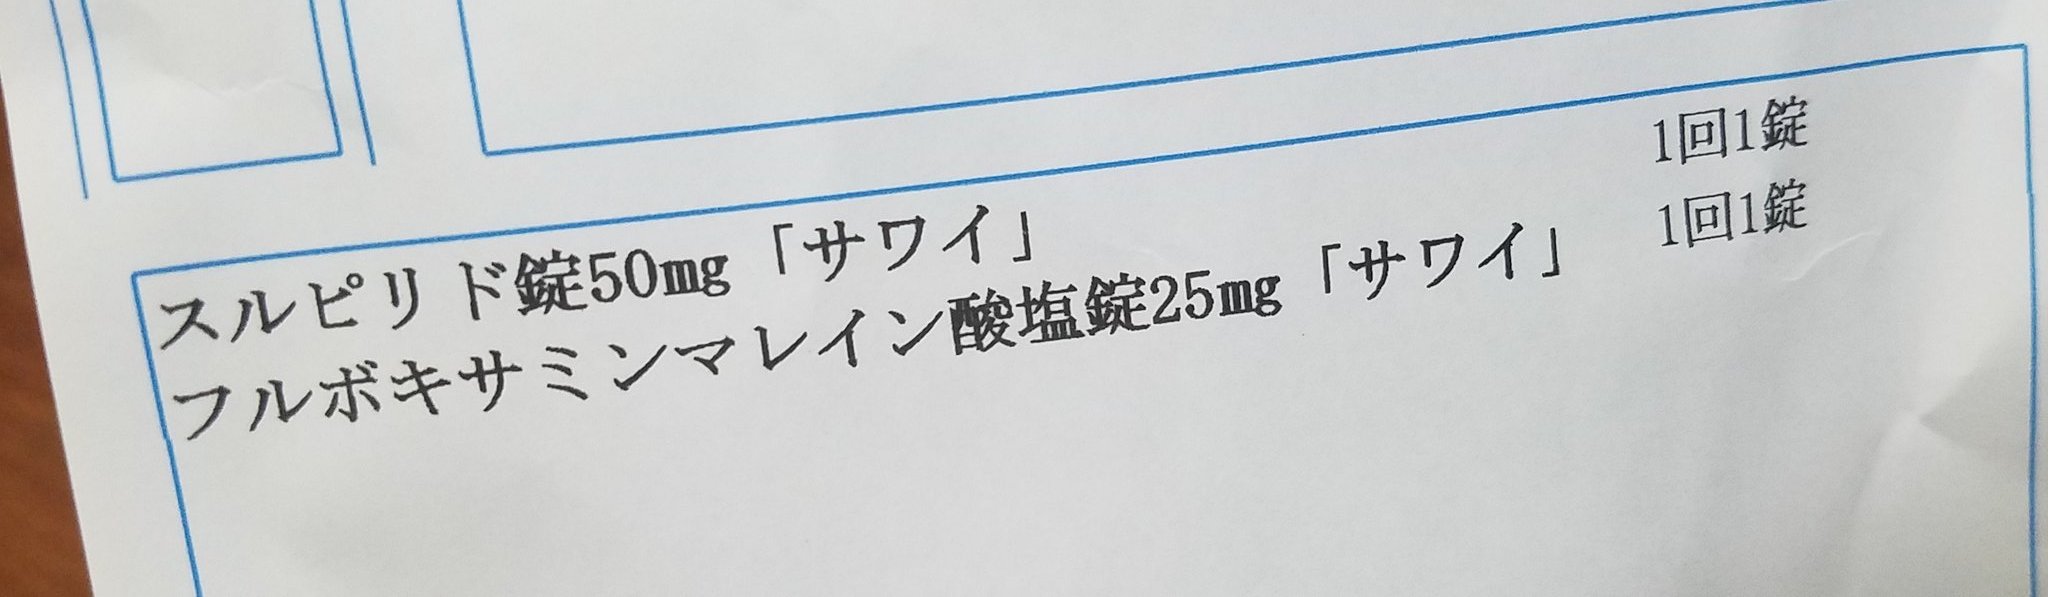 スルピリド錠50mg「サワイ」 1回1錠
フルボキサミンマレイン酸塩錠25mg「サワイ」 1回1錠